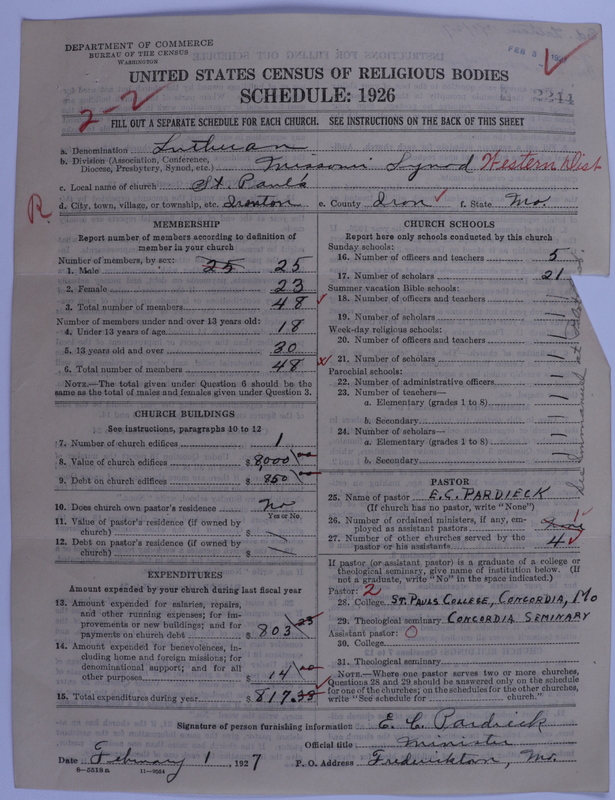 DEPARTMENT OF COMMERCE
BUREAU OF THE CENSUS
WASHINGTON
UNITED STATES CENSUS OF RELIGIOUS BODIES
SCHEDULE: 1926
2-2
2244
FILL OUT A SEPARATE SCHEDULE FOR EACH CHURCH. SEE INSTRUCTIONS ON THE BACK OF THIS SHEET
a. Denomination Lutheran
b. Division (Association, Conference, Diocese, Presbytery, Synod, etc.) Missouri Synod Western Dist
c. Local name of church St. Paul's
R
d. City, town, village, or township, etc. Ironton e. County Iron f. State Mo.
MEMBERSHIP
Report number of members according to definition of
member in your church
Number of members, by sex:
1. Male 25 25
2. Female 23
3. Total number of members 48
Number of members under and over 13 years old:
4. Under 13 years of age 18
5. 13 years old and over 30
6. Total number of members 48
NOTE.—The total given under Question 6 should be
same as the total of males and females given under Question 3.
CHURCH BUILDINGS
See instructions, paragraphs 10 to 12
7. Number of church edifices 1
8. Value of church edifices $ 8,000 00
9. Debt on church edifices $ 850 00
10. Does church own pastor's residence No
Yes or No.
11. Value of pastor's residence (if owned by
church) $
12. Debt on pastor's residence (if owned by
church) $
EXPENDITURES
Amount expended by your church during last fiscal year
13. Amount expended for salaries, repairs,
and other running expenses; for im-
provements or new buildings; and for
payments on church debt $ 803 33
14. Amount expended for benevolences, in-
cluding home and foreign missions; for
denominational support; and for all
other purposes $ 14 00
15. Total expenditures during year $ 817.33
CHURCH SCHOOLS
Report here only schools conducted by this church
Sunday schools:
16. Number of officers and teachers 5
17. Number of scholars 21
Summer vacation Bible schools:
18. Number of officers and teachers
19. Number of scholars
Week-day religious schools:
20. Number of officers and teachers
21. Number of scholars
Parochial schools:
22. Number of administrative officers
23. Number of teachers—
a. Elementary (grades 1 to 8)
b. Secondary
24. Number of scholars—
a. Elementary (grades 1 to 8)
b. Secondary
PASTOR
25. Name of pastor E. C. PARDIECK
(If church has no pastor, write "None")
26. Number of ordained ministers, if any, em-
ployed as assistant pastors
27. Number of other churches served by the
pastor or his assistants 4
If pastor (or assistant pastor) is a graduate of a college or
theological seminary, give name of institution below. (If
not a graduate, write "No" in the space indicated.)
Pastor: 2
28. College ST. PAULS COLLEGE, CONCORDIA, MO
29. Theological seminary CONCORDIA SEMINARY
Assistant pastor: 0
30. College
31. Theological seminary
NOTE.—Where one pastor serves two or more churches,
Questions 28 and 29 should be answered only on the schedule
for one of the churches; on the schedules for the other churches,
write "See schedule for church."
Signature of person furnishing information E. C. Pardieck
Official title Minister
Date February 1, 1927 P. O. Address Fredericktown, Mo.
8-5518a 11-9034